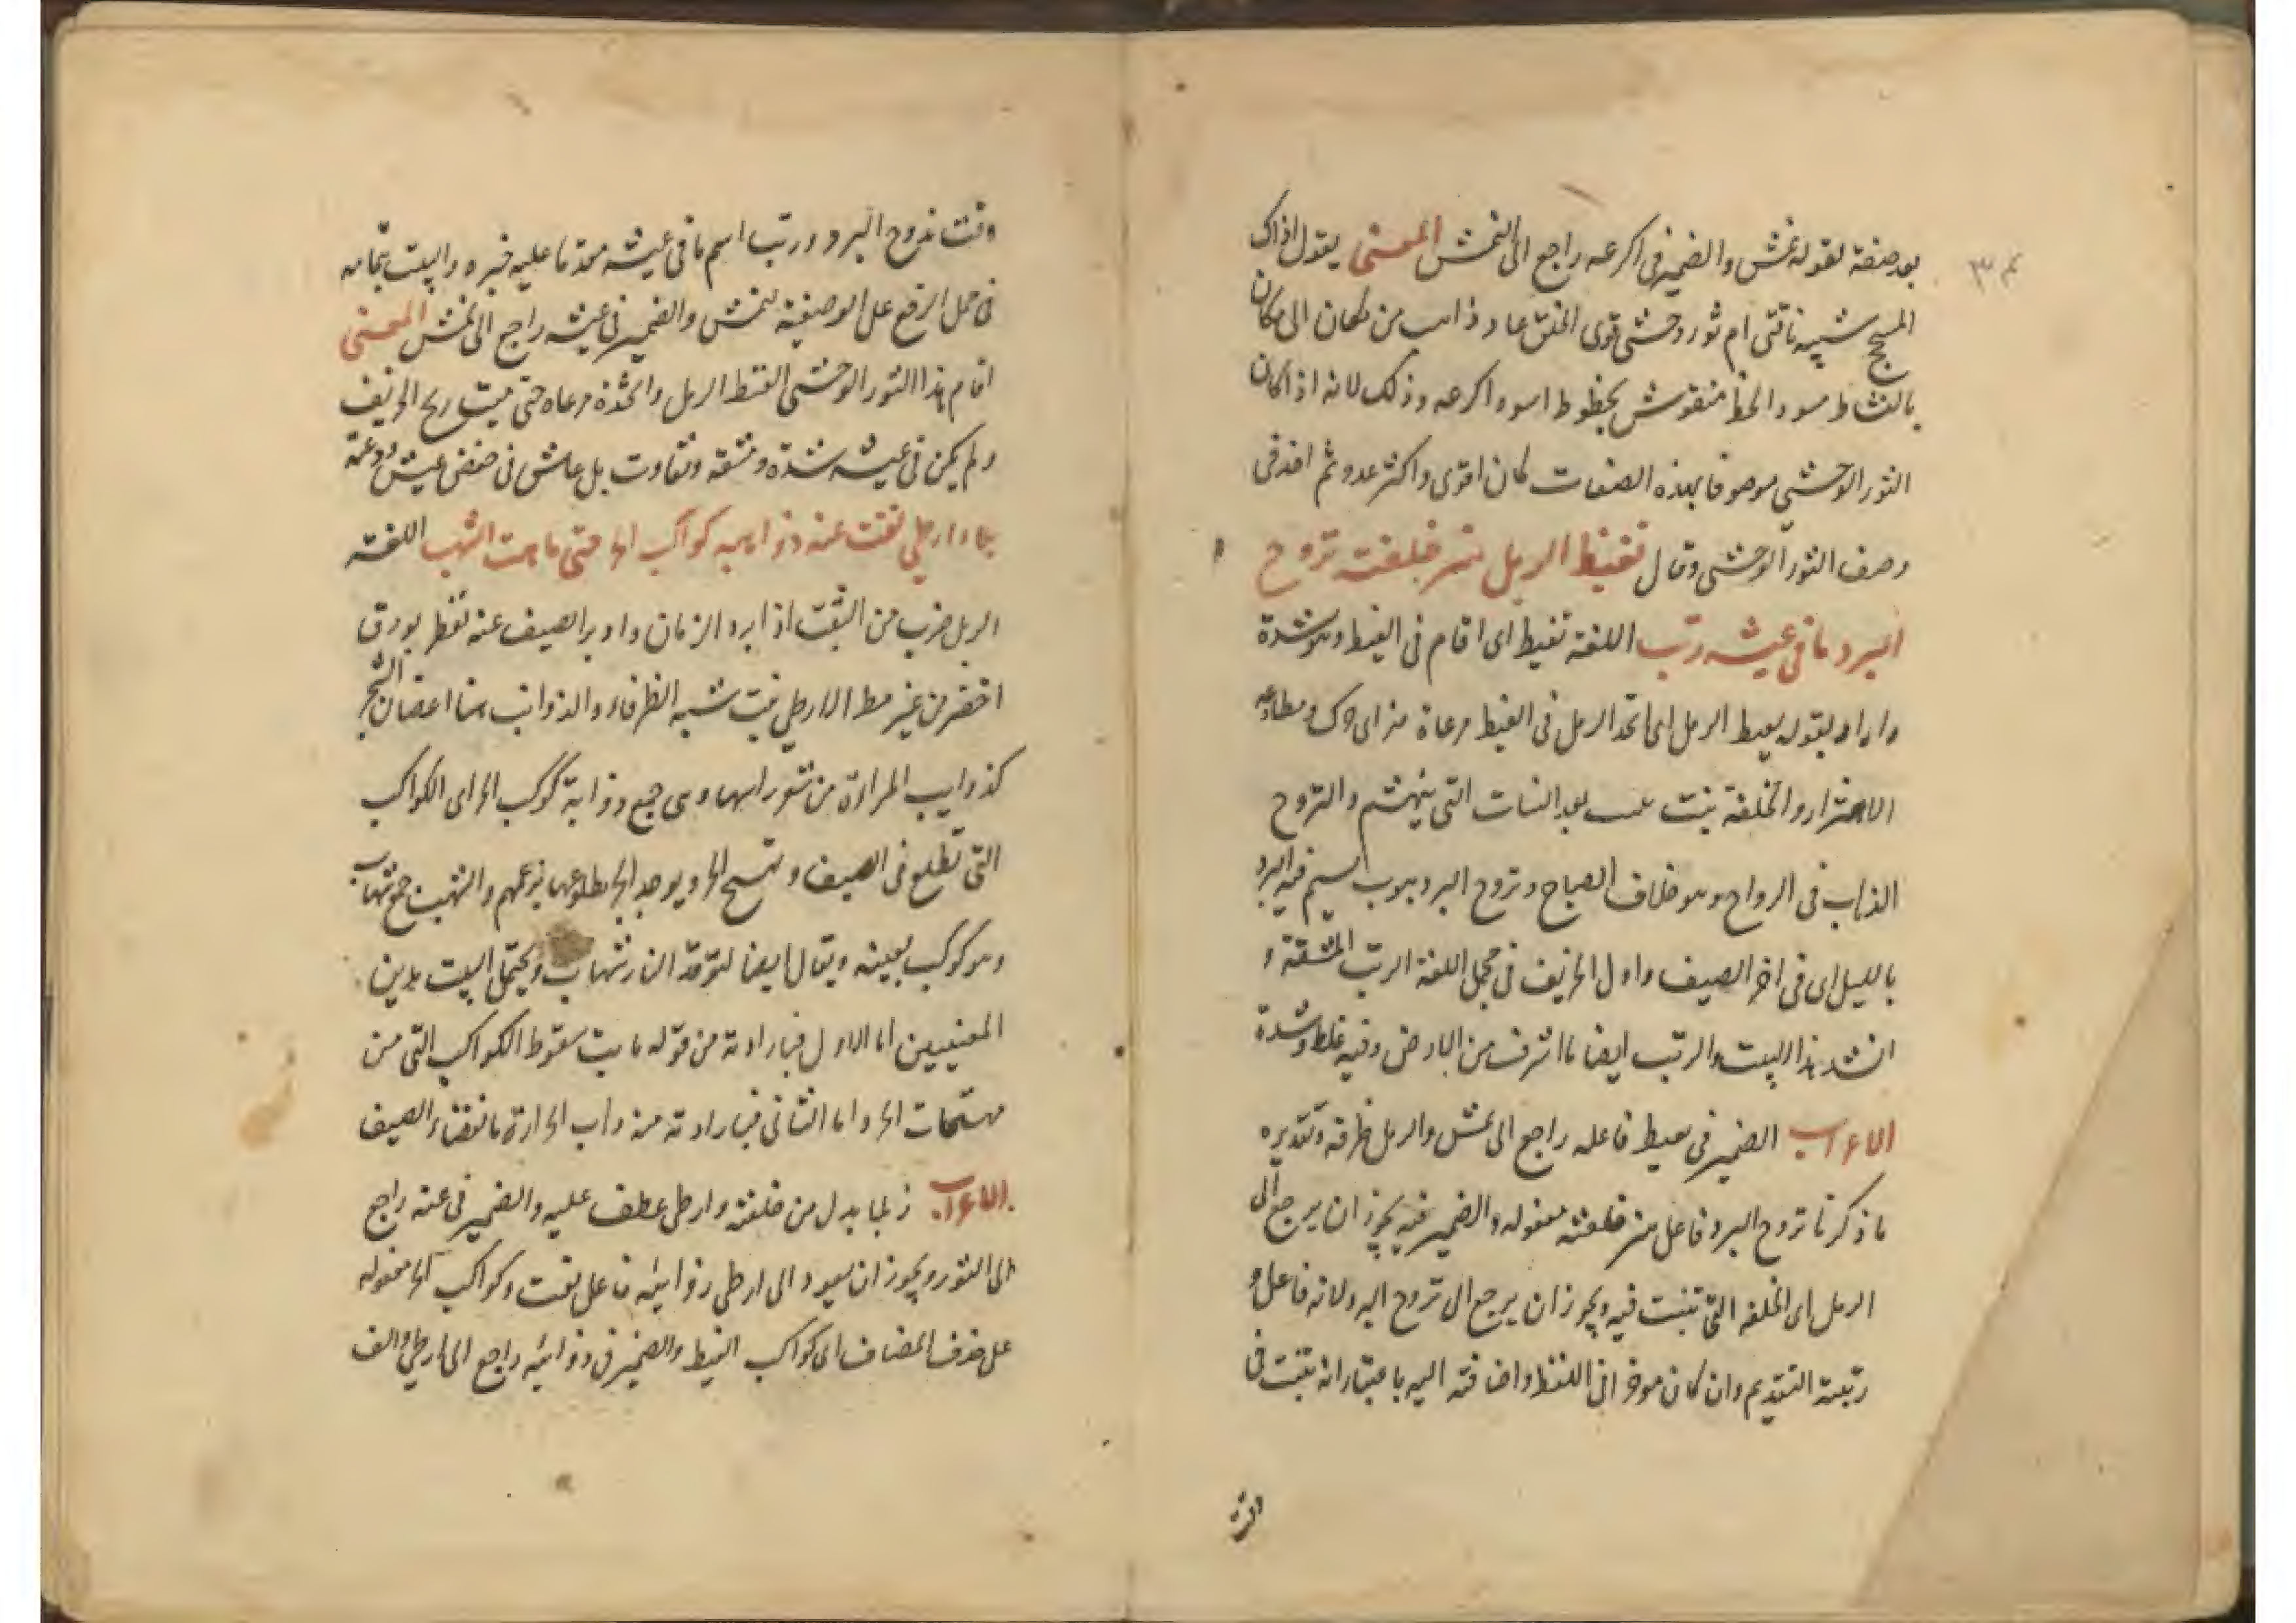 ٣٤
بعد صفة لقوله نمش والضمير فى اكرعه راجع الى النمش المعنى يقول اذاك
المسحج شبيه ناقتى ام ثور وحشى قوى الخلق عاد ذاهب من مكان الى مكان
بالنشاط مسود الخط منقوش بخطوط اسود اكرعه وذلك لانه اذا كان
الثور الوحشى موصوفا بهذه الصفات كان اقوى واكثر عدو ثم اخذ فى
وصف الثور الوحشى وقال تقيظ الرمل هز خلفته تروح
البرد ما فى عيشه رتب اللغة تقيظ اى اقام فى القيظ وهو شدة
واراد بقوله الرمل اى اتخذ الرمل فى القيظ مرعاة هز اى حرك ومطاوعه
الاهتزار والخلفة نبت بعد النبات التى والتروح
الذهاب فى الرواح وهو خلاف الصباح وتروح البرد هبوب نسيم فيه البرد
بالليل اى فى اخر الصيف واول الخريف فى مجمل اللغة الرتب المشقة و
انشد هذا البيت والرتب ايضا ما اشرف من الارض وفيه غلظ وشدة
الاعراب الضمير فى تقيظ فاعله راجع الى نمش والرمل ظرفه وتقديره
ما ذكرنا تروح البرد فاعل هز خلفته مفعوله والضمير فيه يجوز ان يرجع الى
الرمل اى الخلفه التى تنبت فيه ويجوز ان يرجع الى تروح البرد لانه فاعل و
رتبته التقديم وان كان موخرا فى اللفظ واضافته اليه باعتبار انه تنبت فى
وقت تروح البرد ورتب اسم ما فى عيشه مقدما عليه خبره والبيت بتمامه
فى محل الرفع على الوصفية لنمش والضمير فى عيشه راجع الى نمش المعنى
اقام هذا الثور الوحشى القيظ الرمل واتخذه مرعاه حتى هبت ريح الخريف
ولم يكن فى عيشه شدة ومشقة وتفاوت بل عاش فى خفض عيش ودعة
ربلا وارطى نفت عنه ذوايبه كواكب الحر حتى ماتت الشهب اللغة
الربل ضرب من النبت اذا برد الزمان وادبر الصيف عنه تفطر بورق
اخضر من غير مطر الارطى نبت شبيه الطرفاء والذوائب هنا اغصان الشجر
كذوايب المراة من شعور راسها وهى جمع ذوابة كوكب الحر اى الكواكب
التى تطلع فى الصيف و الحر ويوجد الحر بطلوعها بزعمهم والشهب جمع شهاب
وهو كوكب بعينه ويقال ايضا لتوقد النار شهاب ويحتمل البيت هذين
المعنيين اما الاول فبارادته من قوله ماتت سقوط الكواكب التى من
مهيجات الحر واما الثانى فبارادته منه ذهاب الحرارة بانقضاء الصيف
الاعراب ربلا بدل من خلفته وارطى عطف عليه والضمير فى عنه راجع
الى الثور ويجوز ان يعود الى ارطى ذوايبه فاعل نفت وكواكب الحر مفعوله
على حذف المضاف اى كواكب القيظ والضمير فى ذوايبه راجع الى ارطى والف